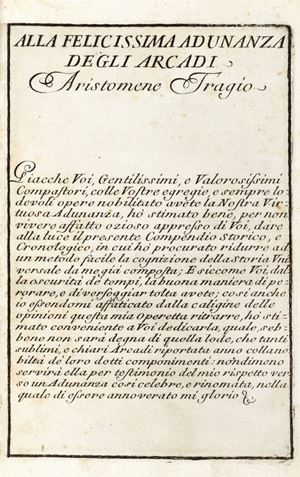 ALLA FELICISSIMA ADUNANZA
DEGLI ARCADI
Aristomene Tragio
Giacche Voi, Gentilissimi, e Valorosissimi
Compastori, colle Vostre egregie, e sempre lo-
devoli opere nobilitato avete la Nostra Vir-
tuosa Adunanza, hò stimato bene, per non
vivere affatto ozioso appresso di Voi, dare
alla luce il presente Compendio Storico, e
Cronologico, in cui hò procurato ridurre ad
un metodo facile la cognizione della storia Uni-
versale da me già composta; E siccome Voi, dal-
la oscurità de tempi, la buona maniera di pe-
rorare, e di verseggiar tolta avete; così anch'e
io essendomi affaticato dalla caligine delle
opinioni questa mia Operetta ritrarre, hò sti-
mato conveniente a Voi dedicarla, quale, seb-
bene non sarà degna di quella lode, che tanti
sublimi, e chiari Arcadi riportata anno coll'am-
biltà de' loro dotti componimenti: nondimeno
servirà ella per testimonio del mio rispetto ver-
so un Adunanza così celebre, e rinomata, nella
quale di essere annoverato mi glorio &.